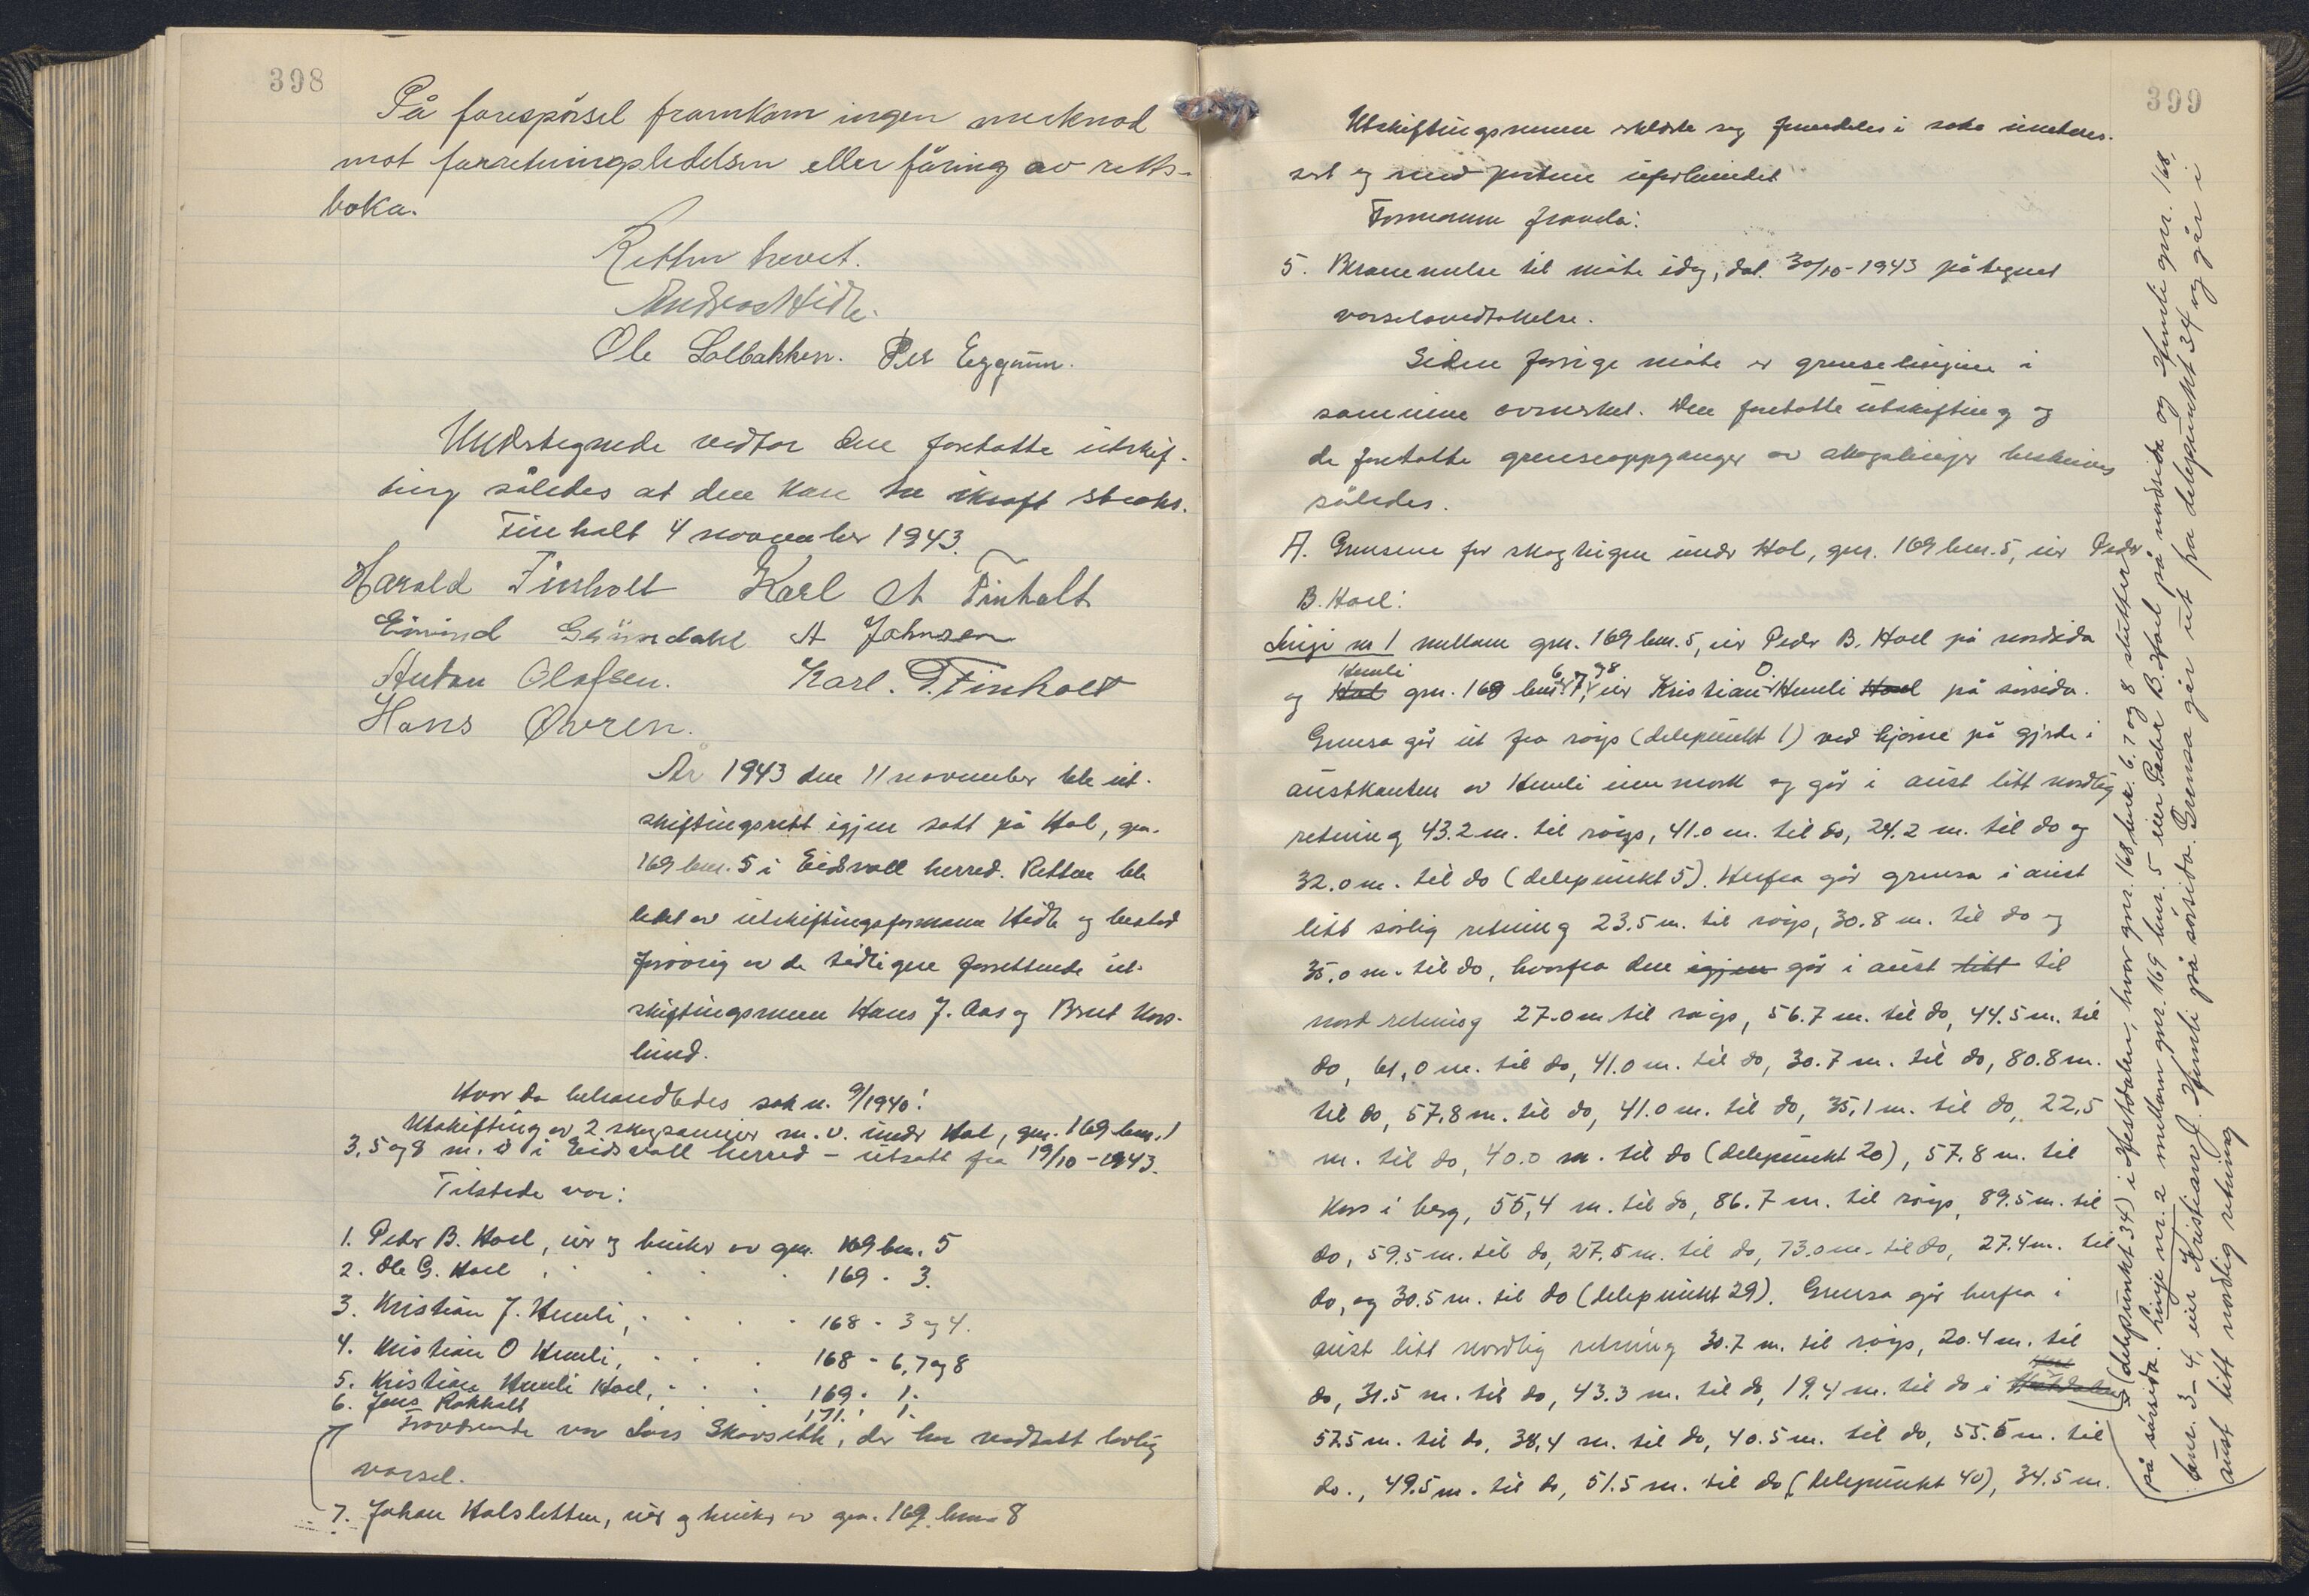 398
På forespörsel framkom ingen merknad
mot forretningsledelsen eller föring av retts-
boka.
Retten hevet.
Andreas Hidle.
Ole Solbakken. Per Eggum.
Undertegnede vedtar den foretatte utskif-
ting således at den kan tre ikraft straks.
Finholt 4 november 1943.
Harald Finholt Karl A Finholt
Eivind Gründahl A Johnsen
Anton Olafsen. Karl. P. Finholt
Hans Øvren.
År 1943 den 11 november ble ut-
skiftingsrett igjen satt på Hol, gnr.
169 bnr. 5 i Eidsvoll herred. Retten ble
ledet av utskiftingsformann Hidle og bestod
forövrig av de tidligere forrettende ut-
skiftingsmenn Hans J. Aas og Brut Kors-
lund.
Hvor da behandledes sak nr. 9/1940:
Utskifting av 2 skogsanner m. v. under Hol, gnr. 169 bnr. 1
3, 5 og 8 m. v i Eidsvoll herred - utsatt fra 19/10-1943.
Tilstede var:
1. Peder B. Hoel, eier og bruker av gnr. 169 bnr. 5
2. Ole G. Hoel " " " " 169 - 3.
3. Kristian J. Humli, " " " " 168 - 3 og 4.
4. Kristian O Humli, " " " 168 - 6, 7 og 8
5. Kristian Humli Hoel, " " " 169 - 1.
6. Jens Rokholt " " " 171. " 1.
Fraværende var Lars Skarseth, der har vedtatt lovlig
varsel.
7. Johan Holsletten, eier og bruker av gnr. 169 bnr. 8
399
Utskiftingsmenn erklærte seg fremdeles i saka uinteres-
sert og med partene ubeslektet
Formannen framla:
5. Berammelse til möte idag, dat. 30/10-1943 påtegnet
varselsvedtakelse.
Siden forrige möte er grenselinjene i
sameiene avmerket. Den foretatte utskifting og
de foretatte grenseoppganger av skogslinjer beskrives
således.
A. Grensene for skogteigen under Hol, gnr. 169 bnr. 5, eier Peder
B. Hoel:
Linje nr 1 mellom gnr. 169 bnr. 5, eier Peder B. Hoel på nordsida
Humli 6, 7 og 8 O
og Hol gnr. 168 bnr. 7, eier Kristian Humli Hoel på sörsida.
Grensa går ut fra röys (delepunkt 1) ved hjörne på gjerde i
austkanten av Humli innmark og går i aust litt nordlig
retning 43.2 m. til röys, 41.0 m. til do, 24.2 m. til do og
32.0 m. til do (delepunkt 5). Herfra går grensa i aust
litt sörlig retning 23.5 m. til röys, 30.8 m. til do og
35.0 m. til do, hvorfra den igjen går i aust litt til
nord retning 27.0 m til röys, 56.7 m. til do, 44.5 m. til
do, 61,0 m. til do, 41.0 m. til do, 30.7 m. til do, 80.8 m.
til do, 57.8 m. til do, 41.0 m. til do, 35,1 m. til do, 22,5
m. til do, 40.0 m. til do (delepunkt 20), 57.8 m. til
Kors i berg, 55,4 m. til do, 86.7 m. til röys, 89.5 m. til
do, 59.5 m. til do, 27.5 m. til do, 73.0 m. til do, 27.4 m. til
do, og 30.5 m. til do (delepunkt 29). Grensa går herfra i
aust litt nordlig retning 30.7 m. til röys, 20.4 m. til
do, 31.5 m. til do, 43.3 m. til do, 19.4 m. til do i
57.5 m. til do, 38,4 m. til do, 40.5 m. til do, 55.5 m. til
do., 49.5 m. til do, 51.5 m. til do (delepunkt 40), 34.5 m.
(delepunkt 34) i Hestdalen, hvor gnr. 168 bnr. 6, 7 og 8 slutter
på sörsida. Linje nr. 2 mellom gnr. 169 bnr. 5 eier Peder B. Hoel på nordsida og Humli gnr. 168,
bnr. 3-4, eier Kristian J. Humli på sörsida. Grensa går ut fra delepunkt 34 og går i
aust litt nordlig retning